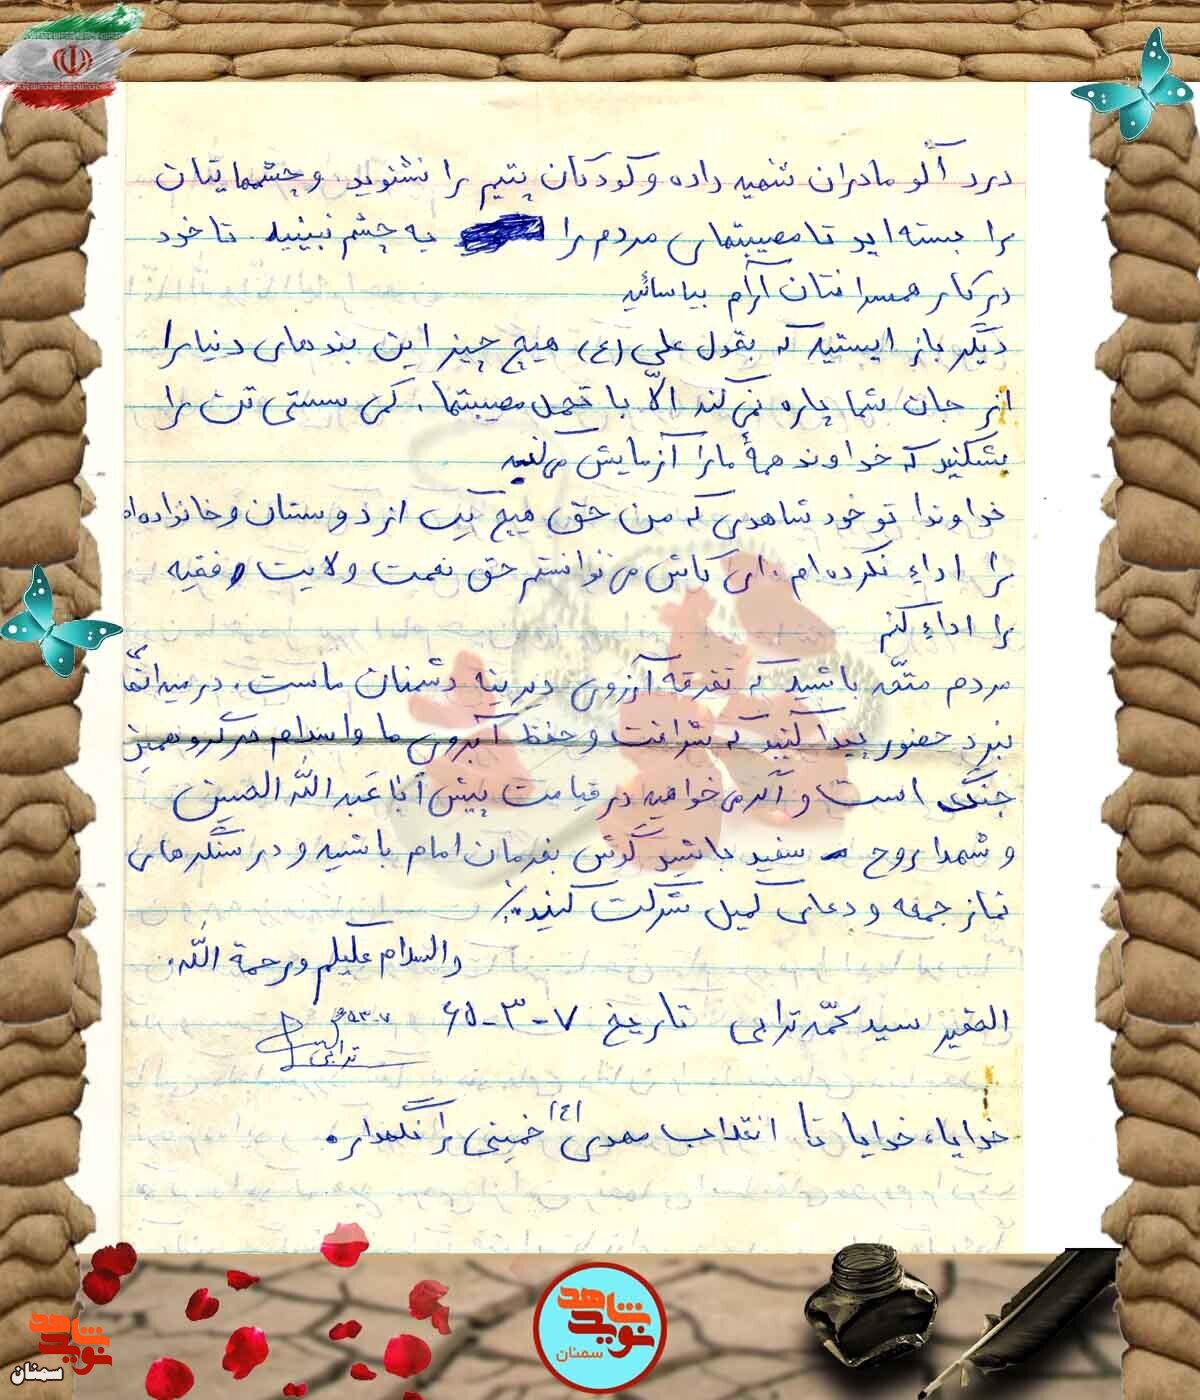 درد آلو مادران شهید داده و کودکان یتیم را نشنوید و چشمهایتان
را بسته اید تا مصیبتهای مردم را به چشم نبینید. تا خود
در کنار همسرانتان آرام بیاسائید
دیگر باز ایستید که بقول علی (ع) هیچ چیز این بندهای دنیا را
از جان شما پاره نمی‌کند الّا با تحمل مصیبتها. کمی سستی تن را
بشکنید که خداوند همهٔ ما را آزمایش می‌کند
خداوندا تو خود شاهدی که من حق هیچ یک از دوستان و خانواده‌ام
را اداء نکرده‌ام. ای کاش می‌توانستم حق نعمت ولایت فقیه
را اداء کنم
مردم متّحد باشید که تفرقه آرزوی دیرینه دشمنان ماست، در میدانهای
نبرد حضور پیدا کنید که شرافت و حفظ آبروی ما و اسلام در گرو همین
جنگ است و اگر می‌خواهید در قیامت پیش أبا عَبد اللّه الحسین
و شهدا روح سفید باشید گوش بفرمان امام باشید و در سنگرهای
نماز جمعه و دعای کمیل شرکت کنید.
والسلام علیکم و رحمة اللّه.
الحقیر سید محمّد ترابی تاریخ ۷-۳-۶۵
ترابی
خدایا، خدایا تا انقلاب مهدی (ع) خمینی را نگهدار
نوید شاهد
سمنان
نوید شاهد
سمنان